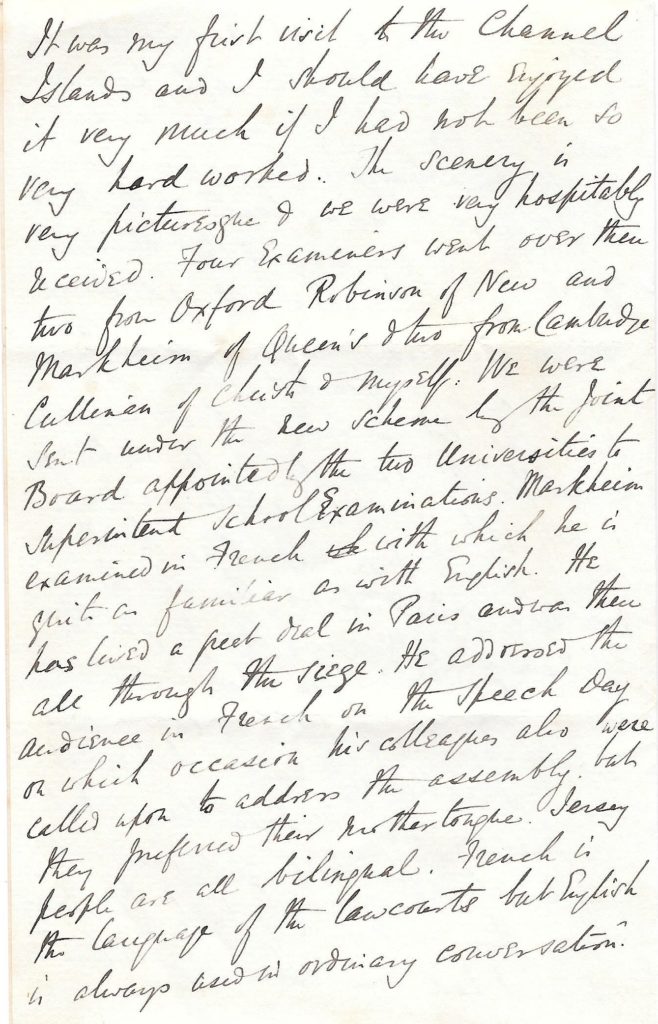 It was my first visit to the Channel
Islands and I should have enjoyed
it very much if I had not been so
very hard worked. The scenery is
very picturesque & we were very hospitably
received. Four Examiners went over then
two from Oxford Robinson of New and
Markheim of Queen's & two from Cambridge
Cullinan of Christs & myself. We were
sent under the new scheme by the Joint
Board appointed by the two Universities to
superintend School Examinations. Markheim
examined in French with which he is
quite as familiar as with English. He
has lived a great deal in Paris and was there
all through the siege. He addressed the
audience in French on the Speech Day
on which occasion his colleagues also were
called upon to address the assembly. but
they preferred their mother tongue. Jersey
people are all bilingual. French is
the language of the law courts but English
is always used in ordinary conversation.